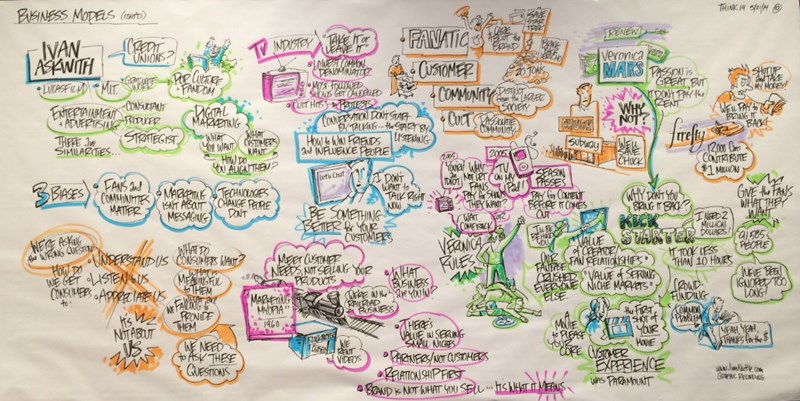 BUSINESS MODELS (CONT'D)
THINK 14 5/21/14
IVAN
ASKWITH
CREDIT
UNIONS?
LUCASFILM
MIT
POP CULTURE
FANDOM
ENTERTAINMENT
+ ADVERTISING
THERE ARE
SIMILARITIES...
CONSULTANT
PRODUCER
STRATEGIST
DIGITAL
MARKETING
WHAT
YOU WANT
WHAT
CUSTOMERS
WANT
HOW DO
YOU ALIGN THEM?
3 BIASES
FANS AND
COMMUNITIES
MATTER
MARKETING
ISN'T ABOUT
MESSAGING
TECHNOLOGIES
CHANGE PEOPLE
DON'T
WE'RE ASKING
THE WRONG QUESTION
HOW DO
WE GET
CONSUMERS
TO:
UNDERSTAND US
LISTEN TO US
APPRECIATE US
IT'S
NOT ABOUT
US
WHAT DO
CONSUMERS WANT?
WHAT IS
MEANINGFUL
TO THEM?
WHAT CAN
WE
TO
PROVIDE
THEM
WE NEED
TO ASK THESE
QUESTIONS
TV INDUSTRY
TAKE IT OR
LEAVE IT
LOWEST COMMON
DENOMINATOR
MOST FOLLOWED
SHOWS GET CANCELLED
CULT HITS
PROTESTS
CONVERSATION DON'T START
BY TALKING - THEY START BY
LISTENING
HOW TO WIN FRIENDS
AND INFLUENCE PEOPLE
LET'S CHAT
I DON'T
WANT TO
TALK RIGHT
NOW
BE SOMETHING
BETTER FOR YOUR
CUSTOMERS
MEET CUSTOMER
NEEDS, NOT SELLING YOUR
PRODUCTS
MARKETING
MYOPIA
1960
WE'RE IN THE
RAILROAD
BUSINESS
WHAT
BUSINESS
ARE YOU IN?
WE
RENT
VIDEOS
THERE'S
VALUE IN SERVING
SMALL NICHES
PARTNERS NOT CUSTOMERS
RELATIONSHIP FIRST
BRAND IS NOT WHAT YOU SELL... IT'S WHAT IT MEANS
FANATIC
CUSTOMER
COMMUNITY
CULT
I LOVE
THIS
BRAND
SAVE
OUR
BRING
BACK
20 TONS
DISTINCT
FROM THE LARGER
SOCIETY
PASSIONATE
COMMUNITY
SUBWAY
WE'LL
SAVE
CHUCK
2005
YOU'RE
AN
IDIOT
WHY
NOT LET
FANS
PAY FOR SHOWS
THEY WANT?
2005
TV
ON MY
iPOD
SEASON
PASSES
PAY FOR CONTENT
BEFORE IT COMES
OUT
WHAT
COMEBACK
VERONICA
RULES
OUR
FANBASE
CRUSHED
EVERYONE
ELSE
VALUE
OF CREATOR
FAN RELATIONSHIPS
"VALUE OF SERVING
NICHE MARKETS"
A
MOVIE
TO PLEASE
YOUR
CORE
THE FIRST
SHOT OF
OUR
MOVIE
CUSTOMER
EXPERIENCE
WAS PARAMOUNT
RENEW
VERONICA
MARS
WHY
NOT?
PASSION IS
GREAT, BUT
I DON'T PAY THE
RENT
SHUT UP
+ TAKE
MY MONEY!
WE'LL PAY TO
BRING IT
BACK
firefly
12,000 FANS
CONTRIBUTE
$1 MILLION
WHY DON'T YOU
BRING IT BACK?
KICK
STARTER
I NEED 2
MILLION
DOLLARS
GIVE THE FANS
WHAT THEY
WANT
91,585
PEOPLE
TOOK LESS
THAN 10 HOURS
WE'VE BEEN
IGNORED TOO
LONG!
CROWD-
FUNDING
COMMON
PROBLEM
YEAH, YEAH...
THANKS FOR THE $
GRAPHIC RECORDING